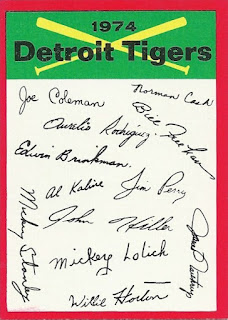 1974
Detroit Tigers
Joe Coleman
Norman Cash
Bill Freehan
Aurelio Rodriguez
Edwin Brinkman
Al Kaline
Jim Perry
Mickey Stanley
John Hiller
Jim Northrup
Mickey Lolich
Willie Horton